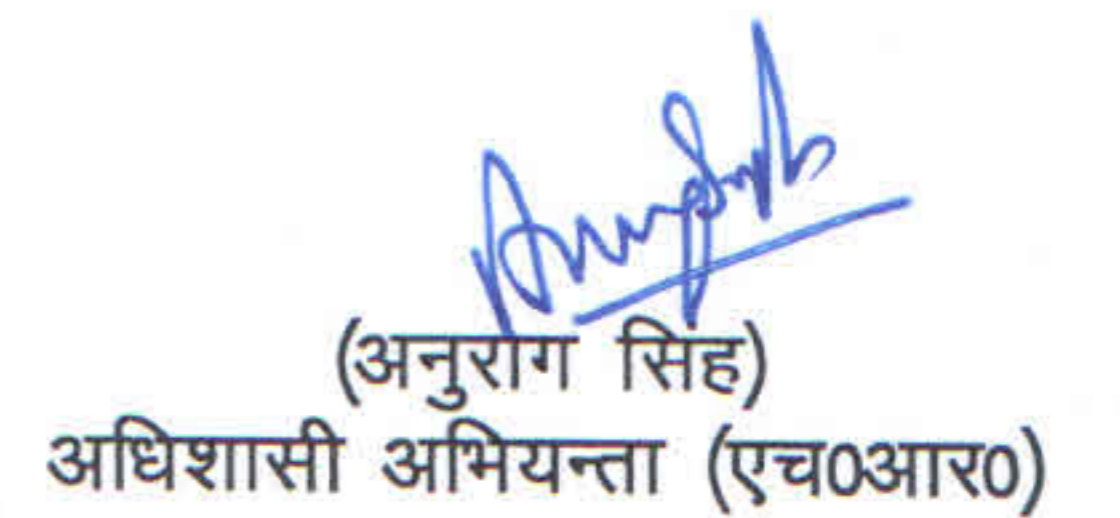 (अनुराग सिंह)
अधिशासी अभियन्ता (एच0आर0)